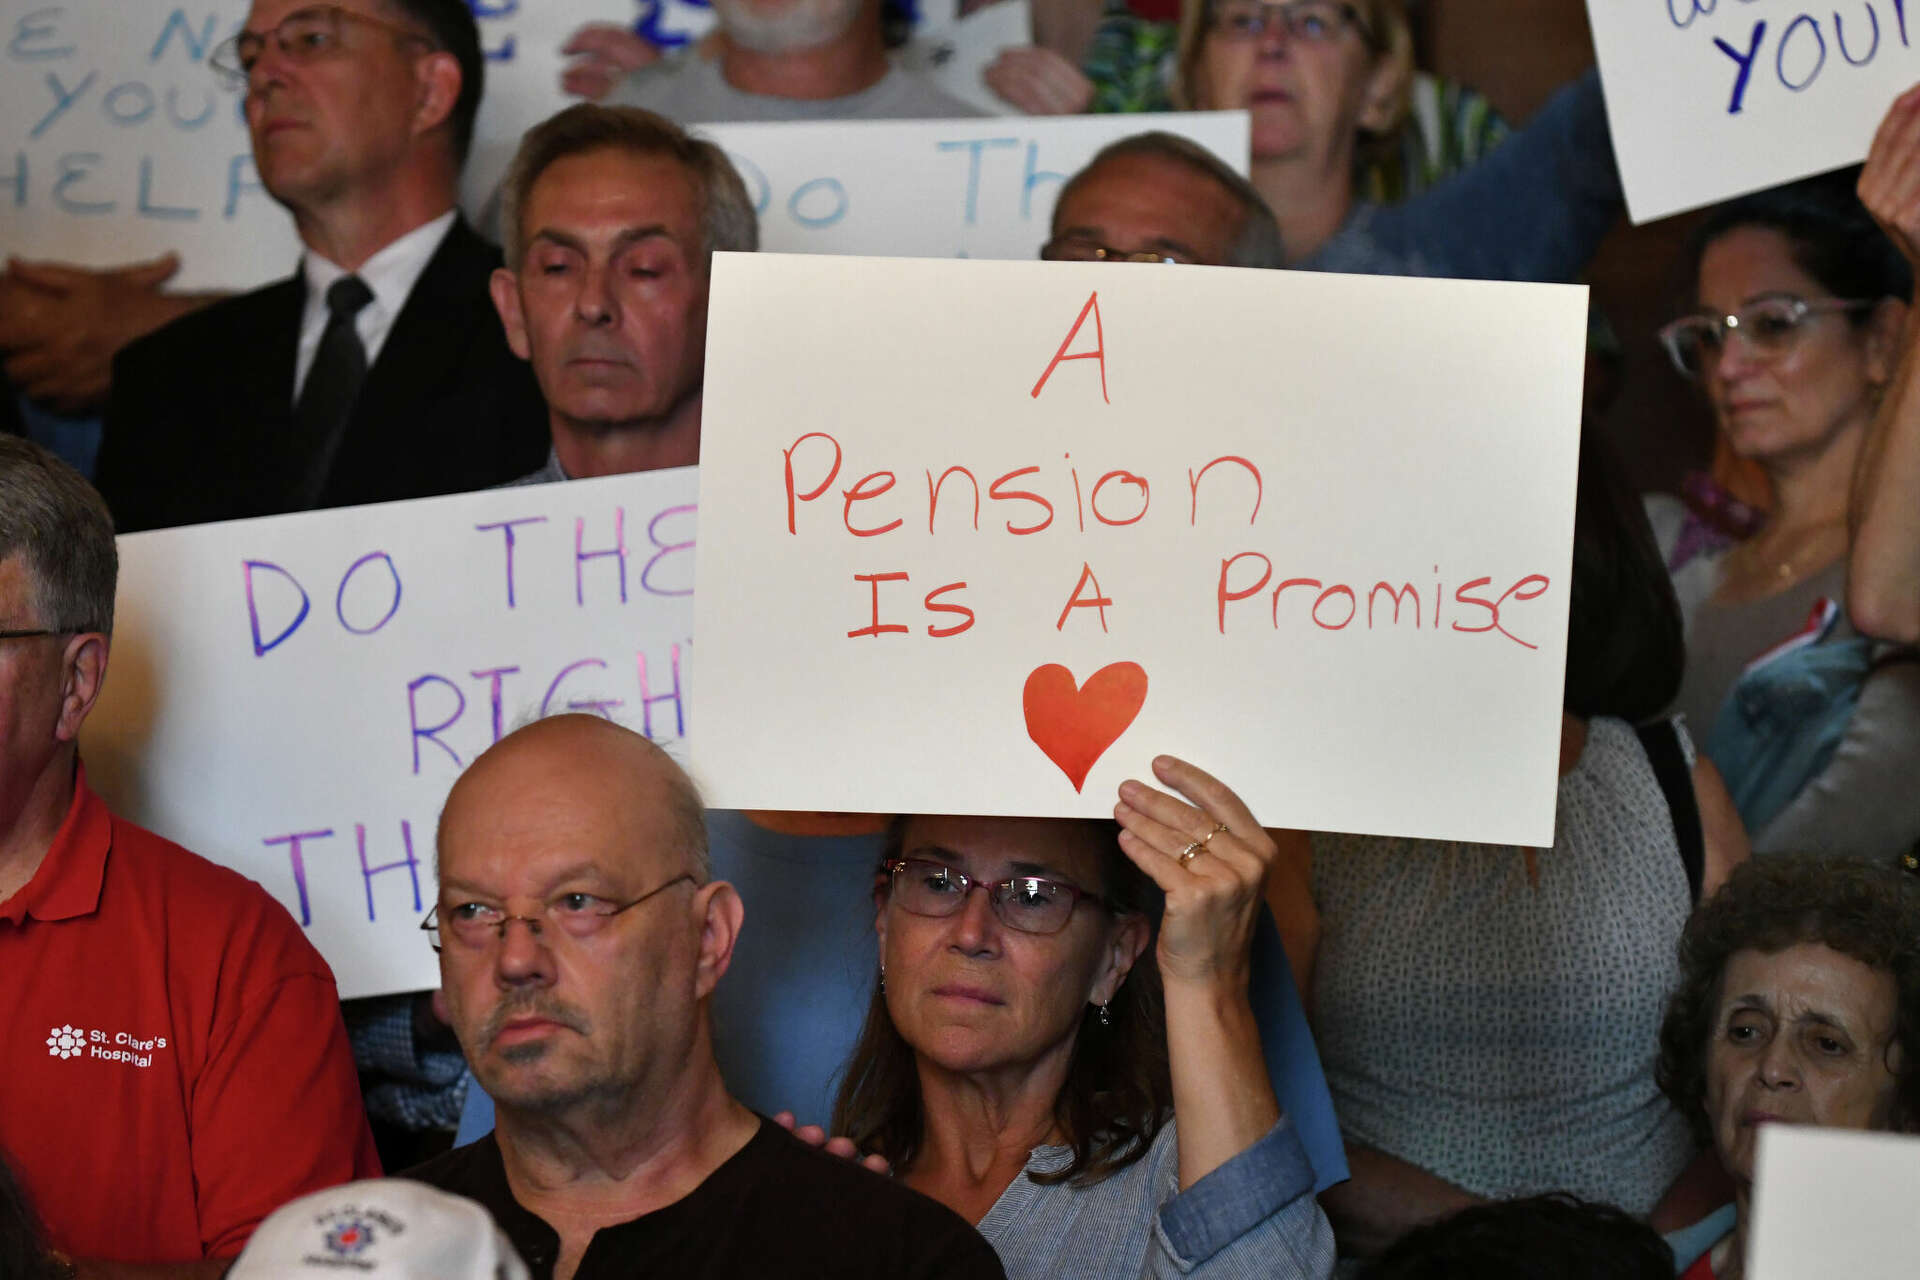 YOU
HELP
Do Th
YOU
A
Pension
Is A Promise
DO THE
RIGH
TH
St. Clare's
Hospital